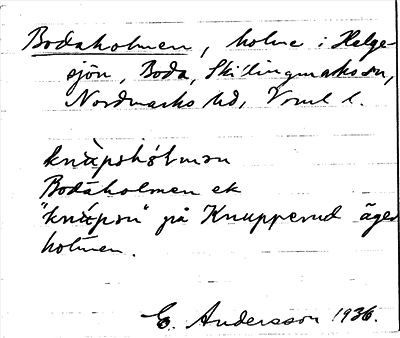 Bodaholmen, holme i Helge-
sjön, Boda, Skillingmarks sn,
Nordmarks hd, Vrml l.
knàpshɷ́lmən
Bodaholmen ek
"knàpən" på Knapperud äges
holmen.
E. Andersson 1936.